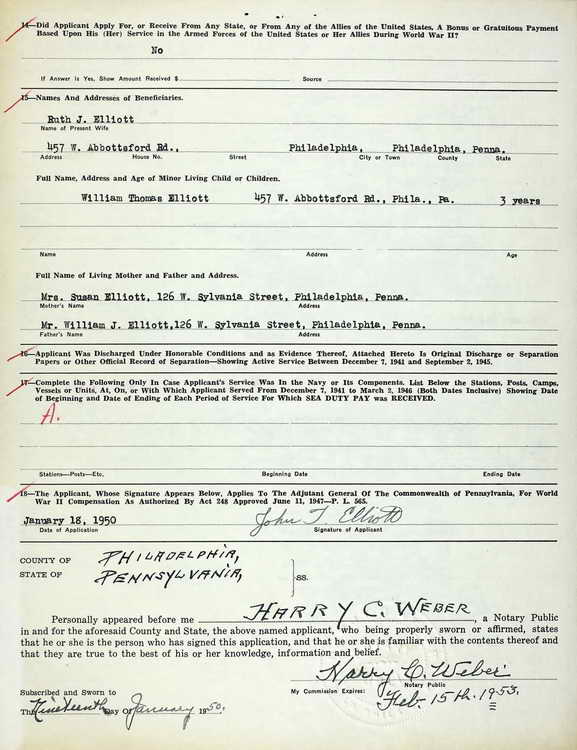 14—Did Applicant Apply For, or Receive From Any State, or From Any of the Allies of the United States, A Bonus or Gratuitous Payment
Based Upon His (Her) Service in the Armed Forces of the United States or Her Allies During World War II?
No
If Answer is Yes, Show Amount Received $ Source
15—Names And Addresses of Beneficiaries.
Ruth J. Elliott
Name of Present Wife
457 W. Abbottsford Rd., Philadelphia, Philadelphia, Penna.
Address House No. Street City or Town County State
Full Name, Address and Age of Minor Living Child or Children.
William Thomas Elliott 457 W. Abbottsford Rd., Phila., Pa. 3 years
Name Address Age
Full Name of Living Mother and Father and Address.
Mrs. Susan Elliott, 126 W. Sylvania Street, Philadelphia, Penna.
Mother's Name Address
Mr. William J. Elliott,126 W. Sylvania Street, Philadelphia, Penna.
Father's Name Address
16—Applicant Was Discharged Under Honorable Conditions and as Evidence Thereof, Attached Hereto Is Original Discharge or Separation
Papers or Other Official Record of Separation—Showing Active Service Between December 7, 1941 and September 2, 1945.
17—Complete the Following Only In Case Applicant's Service Was In the Navy or Its Components. List Below the Stations, Posts, Camps,
Vessels or Units, At, On, or With Which Applicant Served From December 7, 1941 to March 2, 1946 (Both Dates Inclusive) Showing Date
of Beginning and Date of Ending of Each Period of Service For Which SEA DUTY PAY was RECEIVED.
A.
Stations—Posts—Etc. Beginning Date Ending Date
18—The Applicant, Whose Signature Appears Below, Applies To The Adjutant General Of The Commonwealth of Pennsylvania, For World
War II Compensation As Authorized By Act 248 Approved June 11, 1947—P. L. 565.
January 18, 1950 John T Elliott
Date of Application Signature of Applicant
COUNTY OF PHILADELPHIA,
STATE OF PENNSYLVANIA, } ss.
Personally appeared before me HARRY C. WEBER, a Notary Public
in and for the aforesaid County and State, the above named applicant, who being properly sworn or affirmed, states
that he or she is the person who has signed this application, and that he or she is familiar with the contents thereof and
that they are true to the best of his or her knowledge, information and belief.
Harry C. Weber
Notary Public
Subscribed and Sworn to My Commission Expires: Feb. 15th. 1953.
This Nineteenth Day of January 1950.